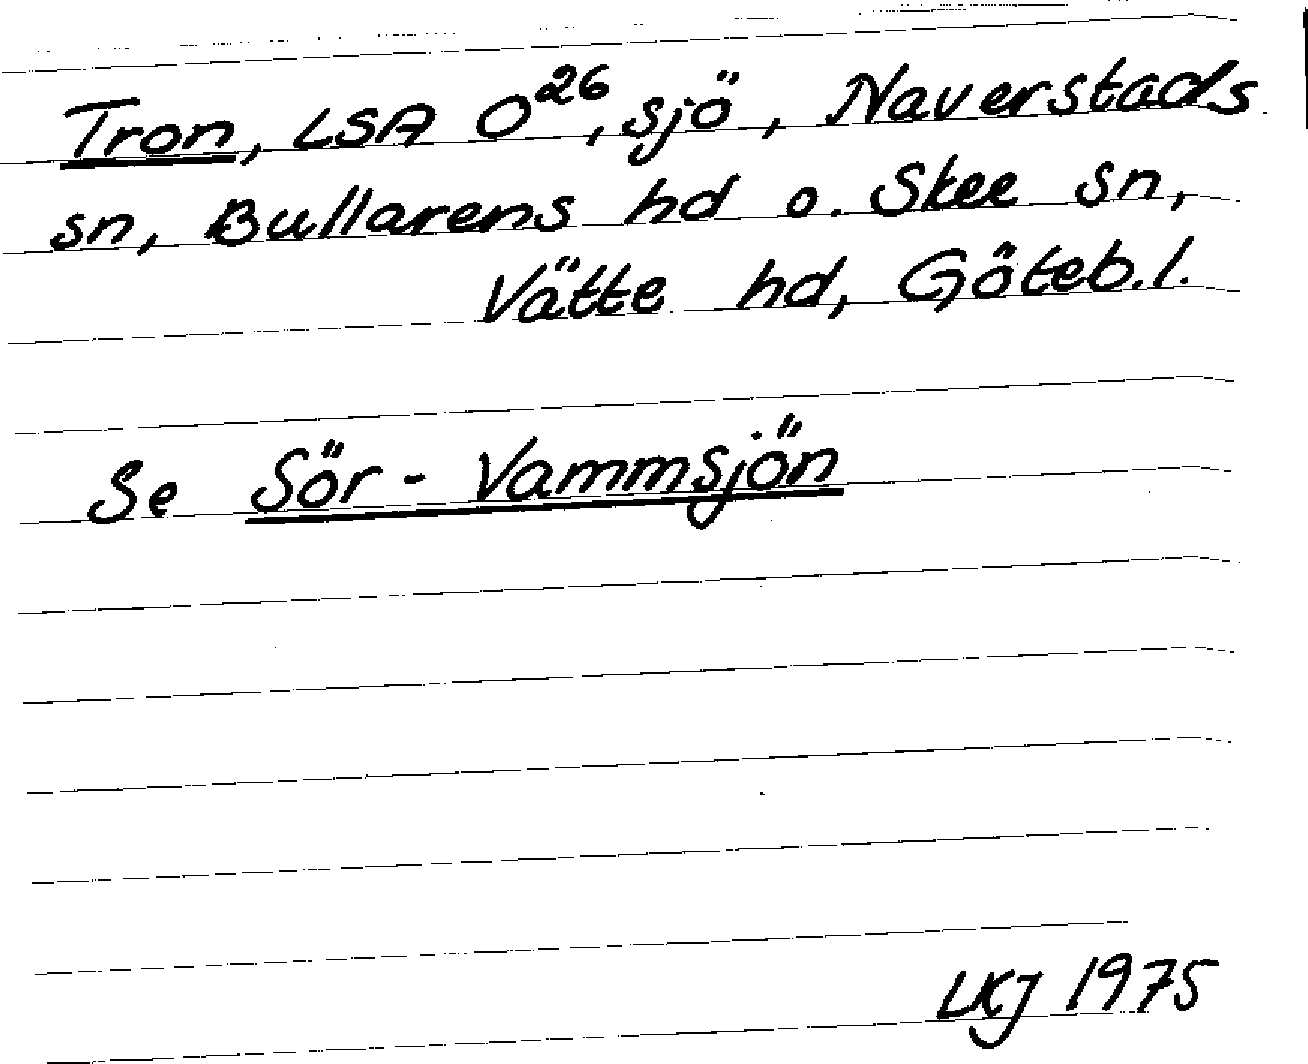 Tron, LSA O²⁶, sjö, Naverstads
sn, Bullarens hd o. Skee sn,
Vätte hd, Göteb.l.
Se Sör-Vammsjön
LKJ 1975